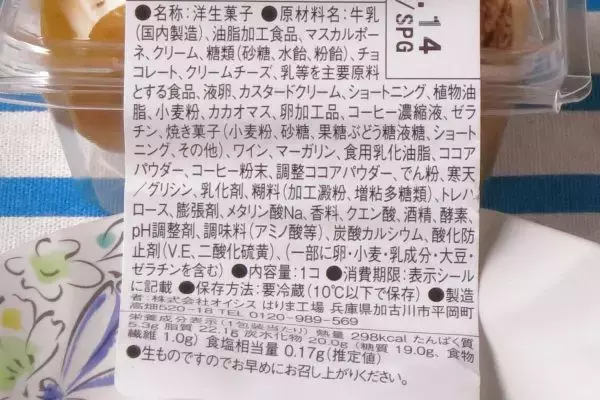 .14
/SPG
●名称:洋生菓子 ●原材料名:牛乳
(国内製造)、油脂加工食品、マスカルポー
ネ、クリーム、糖類(砂糖、水飴、粉飴)、チョ
コレート、クリームチーズ、乳等を主要原料
とする食品、液卵、カスタードクリーム、ショートニング、植物油
脂、小麦粉、カカオマス、卵加工品、コーヒー濃縮液、ゼラ
チン、焼き菓子(小麦粉、砂糖、果糖ぶどう糖液糖、ショート
ニング、その他)、ワイン、マーガリン、食用乳化油脂、ココア
パウダー、コーヒー粉末、調整ココアパウダー、でん粉、寒天
/グリシン、乳化剤、糊料(加工澱粉、増粘多糖類)、トレハ
ロース、膨張剤、メタリン酸Na、香料、クエン酸、酒精、酵素、
pH調整剤、調味料(アミノ酸等)、炭酸カルシウム、酸化防
止剤(V.E、二酸化硫黄)、(一部に卵・小麦・乳成分・大豆・
ゼラチンを含む) ●内容量:1コ ●消費期限:表示シール
に記載 ●保存方法:要冷蔵(10℃以下で保存) ●製造
者:株式会社オイシス はりま工場 兵庫県加古川市平岡町
高畑520-18 TEL 0120-989-569
栄養成分表示(1包装当たり) 熱量 298kcal たんぱく質
5.3g 脂質 22.1g 炭水化物 20.0g (糖質 19.0g、食物
繊維 1.0g) 食塩相当量 0.17g(推定値)
●生ものですのでお早めにお召し上がりください。